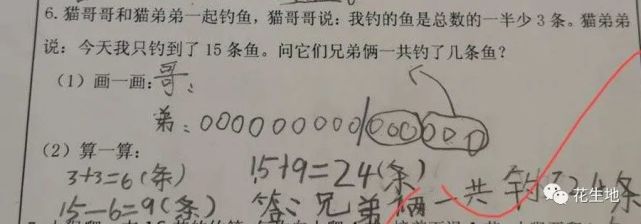 6. 猫哥哥和猫弟弟一起钓鱼，猫哥哥说：我钓的鱼是总数的一半少3条。猫弟弟
说：今天我只钓到了15条鱼。问它们兄弟俩一共钓了几条鱼？
（1）画一画：哥：
弟：000000000|000000
（2）算一算：
3+3=6(条) 15+9=24(条)
15-6=9(条) 答：兄弟俩一共钓了24条
花生地